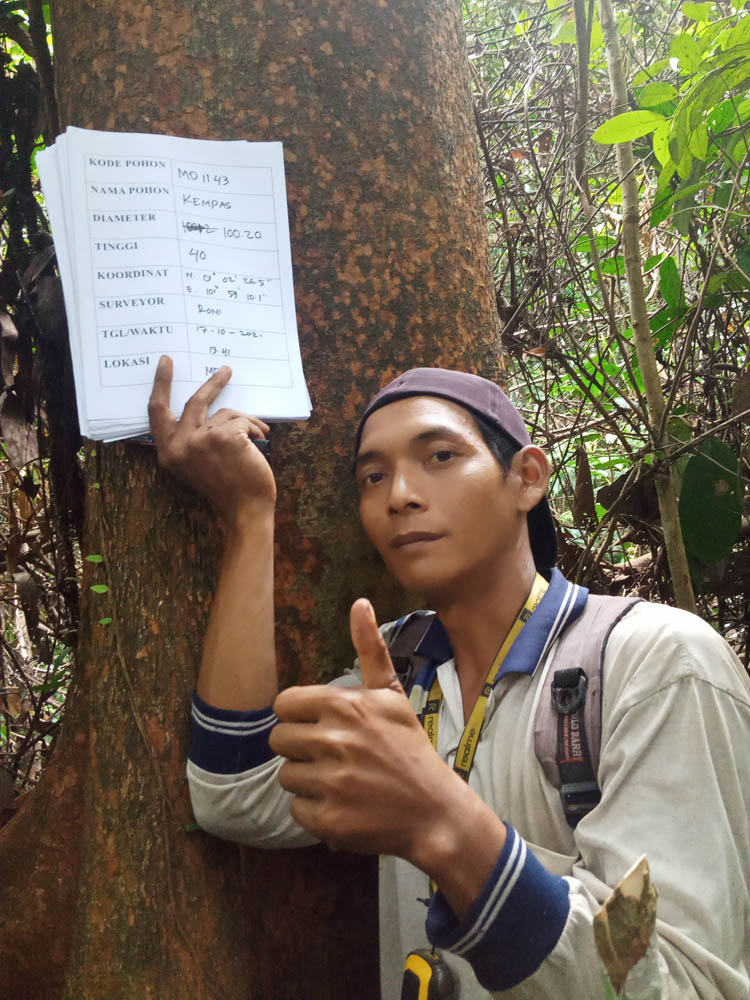 KODE POHON MD 11 43
NAMA POHON KEMPAS
DIAMETER 100.20
TINGGI 40
KOORDINAT N. 01° 02' 26.5"
E. 101° 59' 10.1"
SURVEYOR RONI
TGL/WAKTU 17-10-202
13.41
LOKASI
realme
realme
POLO BARRI